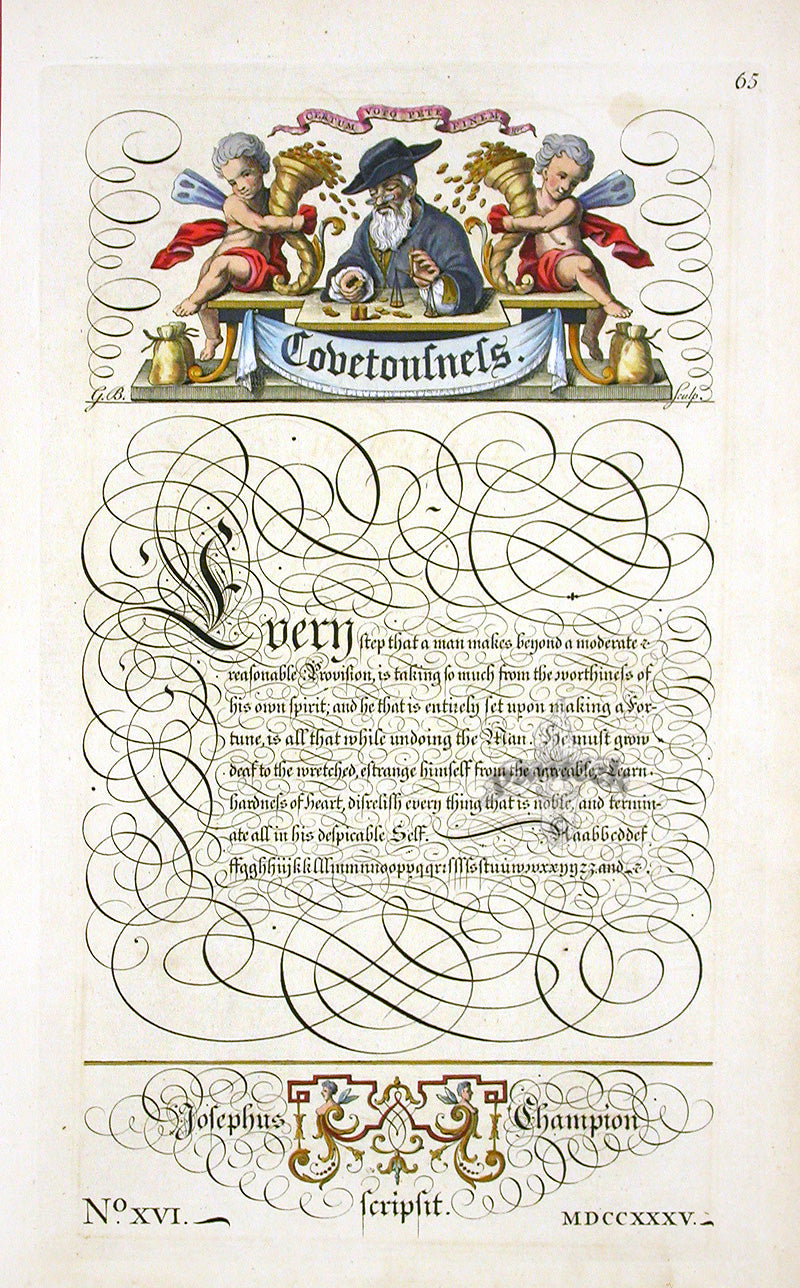 65
CERTUM VOTO PETE FINEM. &c.
Covetouſneſs.
G.B.
Sculp.
Every ſtep that a man makes beyond a moderate &
reaſonable Proviſion, is taking ſo much from the worthineſs of
his own ſpirit; and he that is entirely ſet upon making a For-
tune, is all that while undoing the Man. He must grow
deaf to the wretched, eſtrange himſelf from the agreeable, Learn
hardneſs of Heart, diſreliſh every thing that is noble, and termin-
ate all in his deſpicable Self. Aaabbcddef
Joſephus Champion
ſcripſit.
No. XVI.
MDCCXXXV.